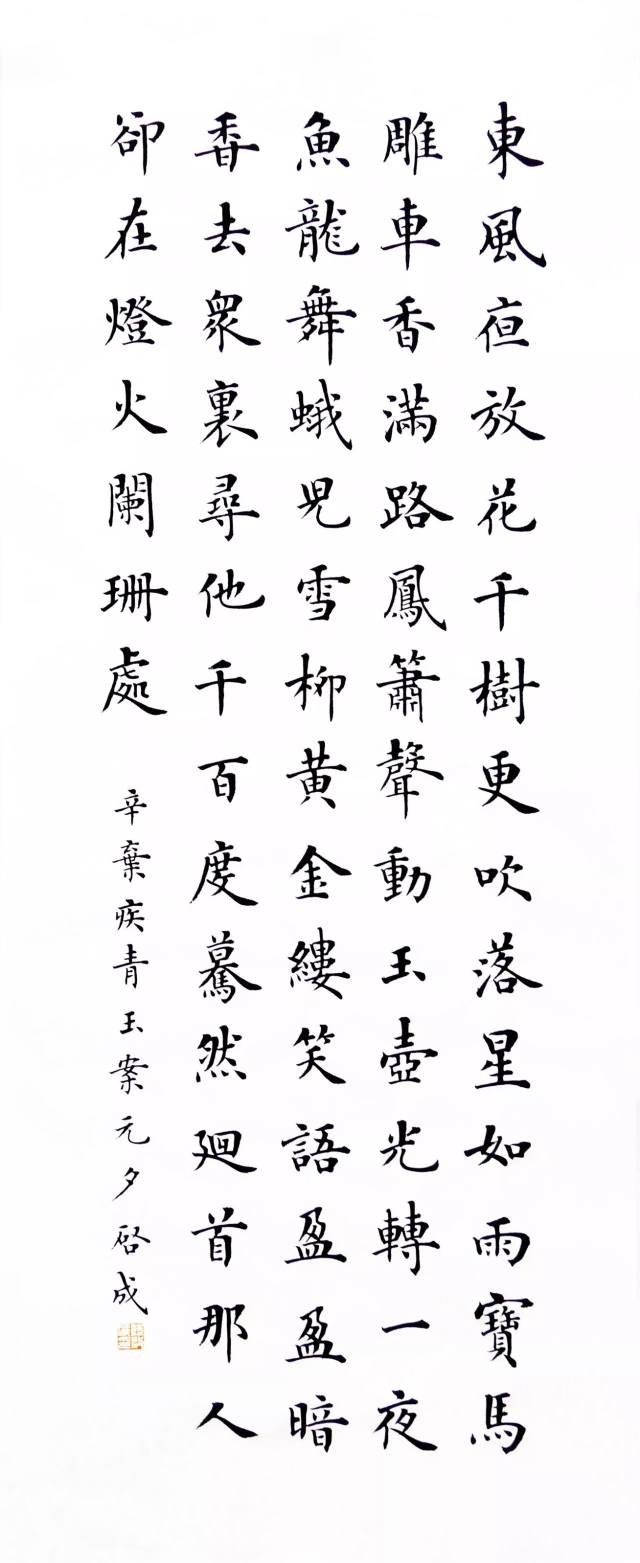 東風亱放花千樹更吹落星如雨寶馬
雕車香滿路鳳簫聲動玉壺光轉一夜
魚龍舞蛾兒雪柳黄金縷笑語盈盈暗
香去衆裏尋他千百度驀然廻首那人
卻在燈火闌珊處
辛棄疾青玉案元夕启成